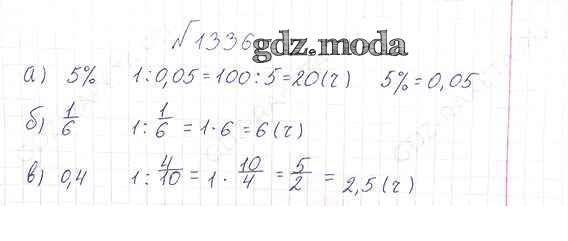 №1336 gdz.moda
а) 5% 1:0,05=100:5=20(г) 5%=0,05
б) 1/6 1: 1/6 = 1·6 = 6(г)
в) 0,4 1: 4/10 = 1 · 10/4 = 5/2 = 2,5(г)